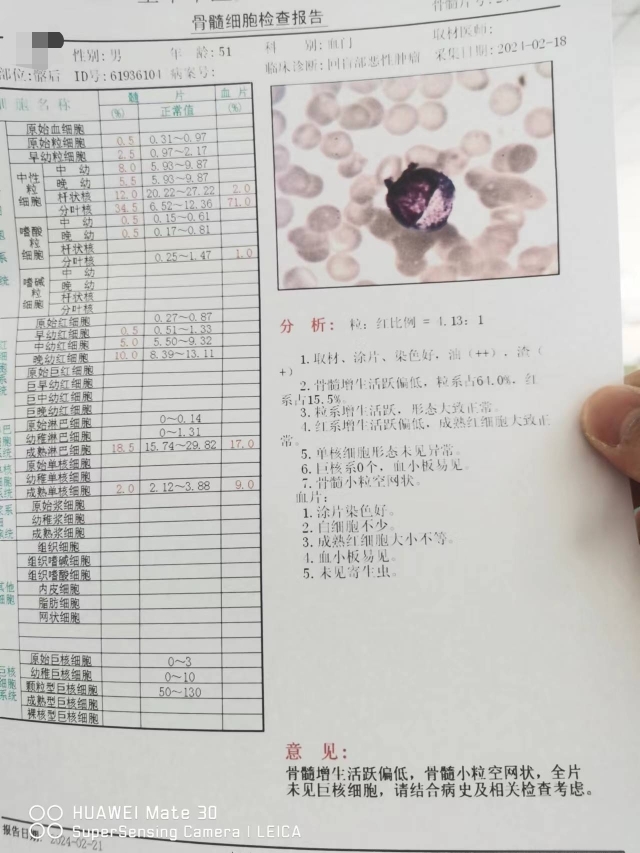 骨髓细胞检查报告
性别:男 年 龄:51 科 别:血门 取材医师:
部位:髂后 ID号:61936104 病案号: 临床诊断:回盲部恶性肿瘤 采集日期:2024-02-18
细胞名称 髓 片 血片
(%) 正常值 (%)
原始血细胞
原始粒细胞 0.5 0.31~0.97
早幼粒细胞 2.5 0.97~2.17
中性粒细胞 中 幼 8.0 5.93~9.87
晚 幼 5.5 5.93~9.87
杆状核 12.0 20.22~27.22 2.0
分叶核 34.5 6.52~12.36 71.0
嗜酸粒细胞 中 幼 0.5 0.15~0.61
晚 幼 0.5 0.17~0.81
杆状核
分叶核 0.25~1.47 1.0
嗜碱粒细胞 中 幼
晚 幼
杆状核
分叶核
原始红细胞 0.27~0.87
早幼红细胞 0.5 0.51~1.33
中幼红细胞 5.0 5.50~9.32
晚幼红细胞 10.0 8.39~13.11
原始巨红细胞
巨早幼红细胞
巨中幼红细胞
巨晚幼红细胞
原始淋巴细胞 0~0.14
幼稚淋巴细胞 0~1.31
成熟淋巴细胞 18.5 15.74~29.82 17.0
原始单核细胞
幼稚单核细胞
成熟单核细胞 2.0 2.12~3.88 9.0
原始浆细胞
幼稚浆细胞
成熟浆细胞
组织细胞
组织嗜碱细胞
组织嗜酸细胞
内皮细胞
脂肪细胞
网状细胞
原始巨核细胞 0~3
幼稚巨核细胞 0~10
颗粒型巨核细胞 50~130
成熟型巨核细胞
裸核型巨核细胞
分 析: 粒:红比例 = 4.13:1
1.取材、涂片、染色好,油(++),渣(
+)
2.骨髓增生活跃偏低,粒系占64.0%,红
系占15.5%。
3.粒系增生活跃,形态大致正常。
4.红系增生活跃偏低,成熟红细胞大致正
常。
5.单核细胞形态未见异常。
6.巨核系0个,血小板易见。
7.骨髓小粒空网状。
血片:
1.涂片染色好。
2.白细胞不少。
3.成熟红细胞大小不等。
4.血小板易见。
5.未见寄生虫。
意 见:
骨髓增生活跃偏低,骨髓小粒空网状,全片
未见巨核细胞,请结合病史及相关检查考虑。
HUAWEI Mate 30
SuperSensing Camera | LEICA
报告日期: 2024-02-21